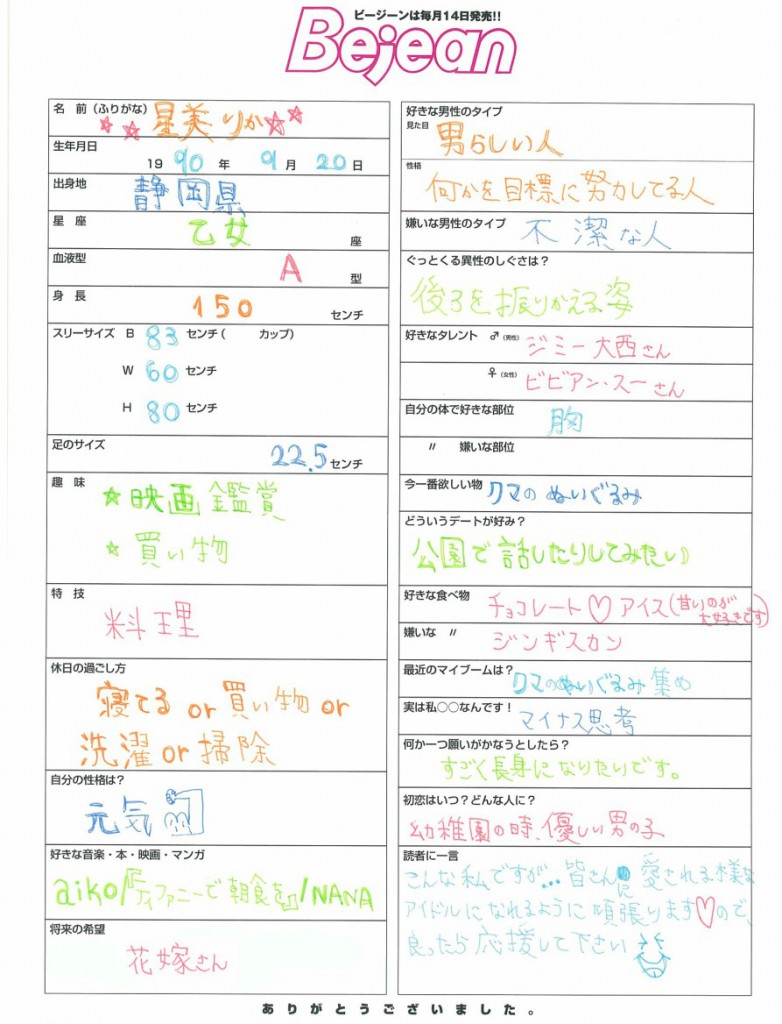 ビージーンは毎月14日発売!!
Bejean
名 前(ふりがな) ☆☆星美りか☆☆
生年月日
19 90 年 9 月 20 日
出身地 静岡県
星 座 乙女 座
血液型 A 型
身 長 150 センチ
スリーサイズ B 83 センチ( カップ)
W 60 センチ
H 80 センチ
足のサイズ 22.5 センチ
趣 味 ☆映画鑑賞
☆買い物
特 技
料理
休日の過ごし方
寝てる or 買い物 or
洗濯 or 掃除
自分の性格は?
元気
好きな音楽・本・映画・マンガ
aiko/『ティファニーで朝食を』/NANA
将来の希望
花嫁さん
好きな男性のタイプ
見た目 男らしい人
性格
何かを目標に努力してる人
嫌いな男性のタイプ 不潔な人
ぐっとくる異性のしぐさは?
後ろを振りかえる姿
好きなタレント ♂(男性) ジミー大西さん
♀(女性) ビビアン・スーさん
自分の体で好きな部位 胸
〃 嫌いな部位
今一番欲しい物 クマのぬいぐるみ
どういうデートが好み?
公園で話したりしてみたい)
好きな食べ物 チョコレート♡アイス(甘いのが大好きです)
嫌いな 〃 ジンギスカン
最近のマイブームは? クマのぬいぐるみ集め
実は私○○なんです! マイナス思考
何か一つ願いがかなうとしたら?
すごく長身になりたいです。
初恋はいつ?どんな人に?
幼稚園の時、優しい男の子
読者に一言
こんな私ですが…皆さんに愛される様な
アイドルになれるように頑張ります♡ので、
良ったら応援して下さい
ありがとうございました。